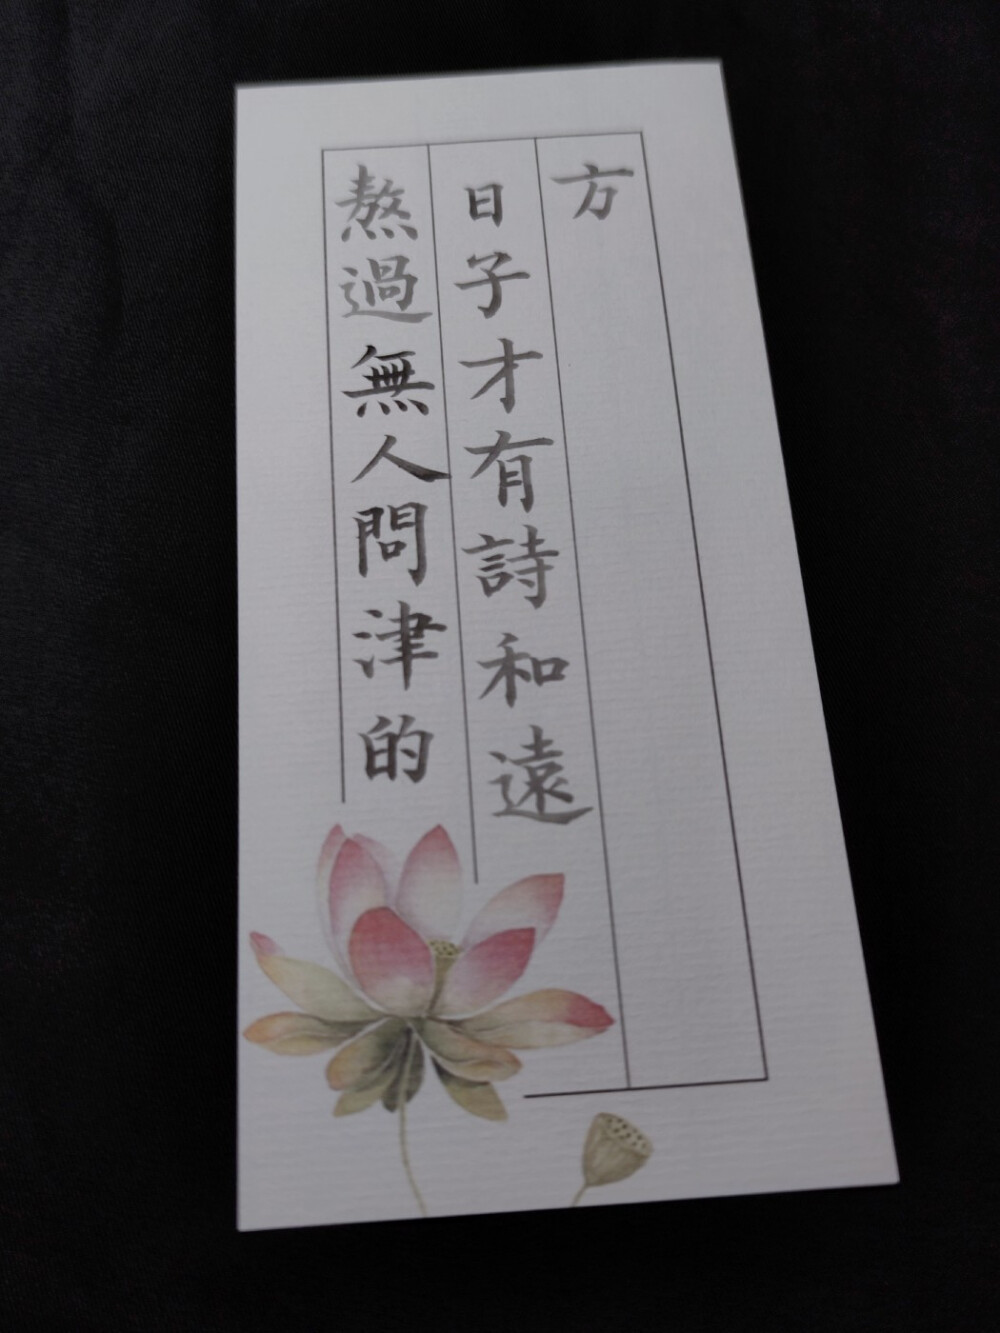 熬過無人問津的
日子才有詩和遠
方